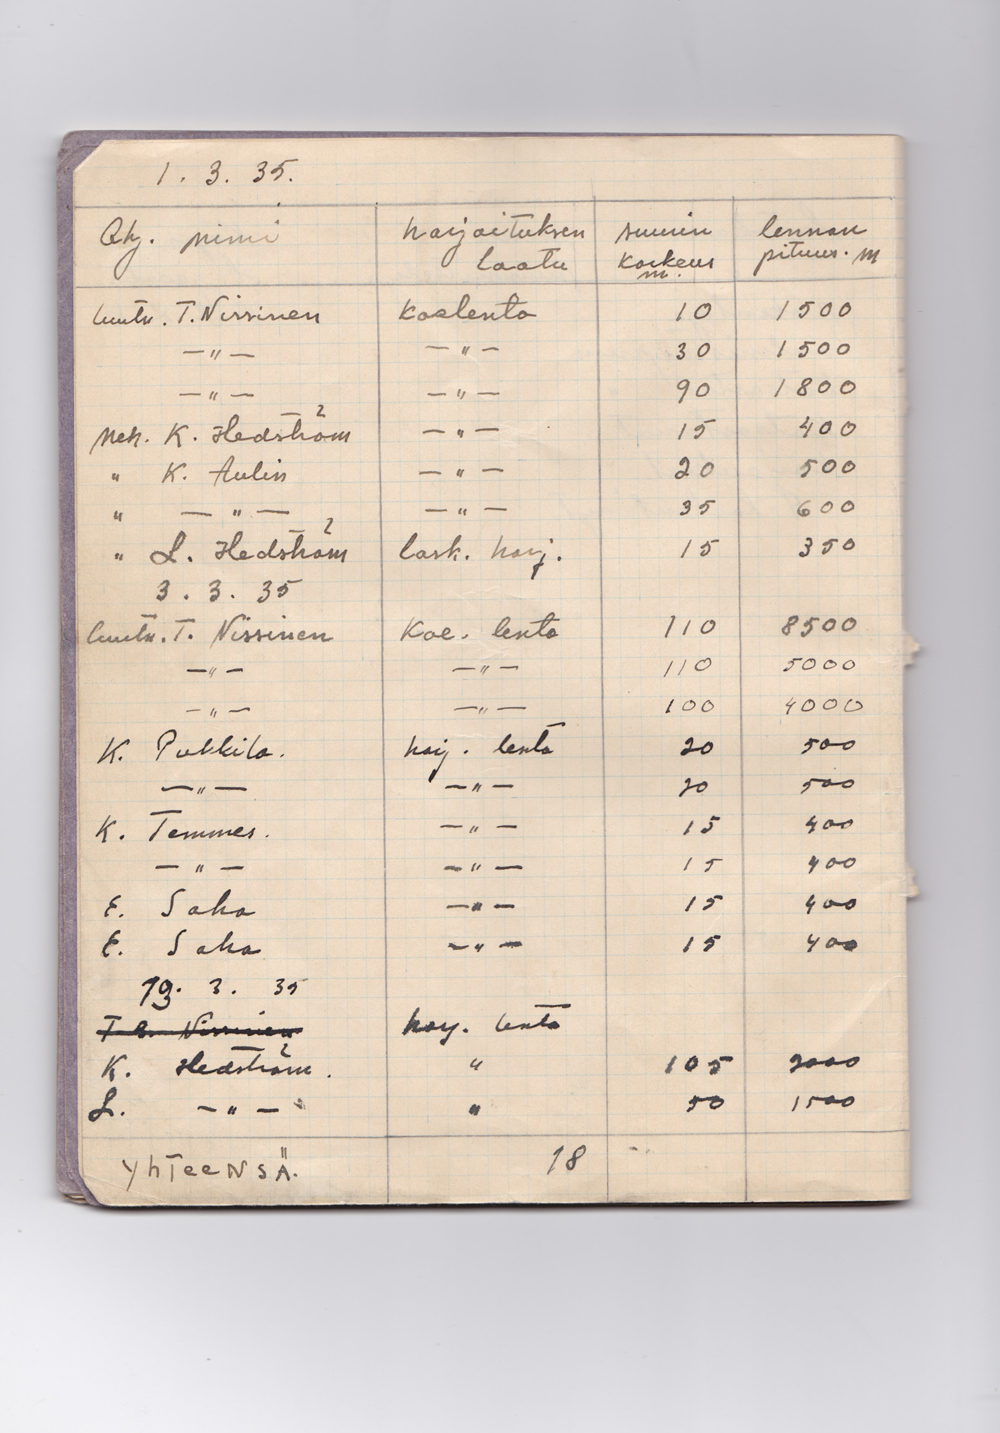 1. 3. 35.
Ohj. nimi harjoituksen laatu suurin korkeus m. lennon pituus. m
luutn. T. Nissinen koelento 10 1500
—"— —"— 30 1500
—"— —"— 90 1800
neh. K. Hedström —"— 15 400
" K. Aulin —"— 20 500
" —"— —"— 35 600
" L. Hedström lask. harj. 15 350
3. 3. 35
luutn. T. Nissinen Koe. lento 110 8500
—"— —"— 110 5000
—"— —"— 100 4000
K. Pukkila. harj. lento 20 500
—"— —"— 20 500
K. Temmes. —"— 15 400
—"— —"— 15 400
E. Saha —"— 15 400
E. Saha —"— 15 400
19. 3. 35
Nissinen harj. lento
K. Hedström. " 105 2000
L. —"— " 50 1500
YhTeeNSÄ. 18